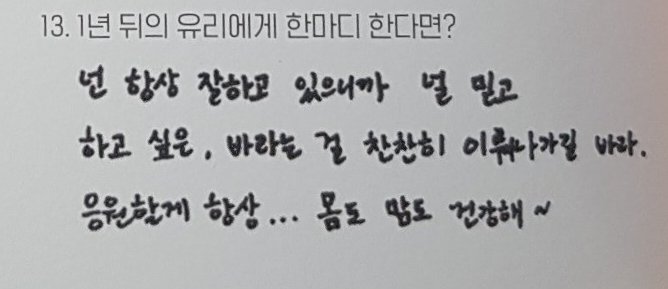 13. 1년 뒤의 유리에게 한마디 한다면?
넌 항상 잘하고 있으니까 널 믿고
하고 싶은, 바라는 걸 찬찬히 이뤄나가길 바라.
응원할게 항상... 몸도 맘도 건강해~